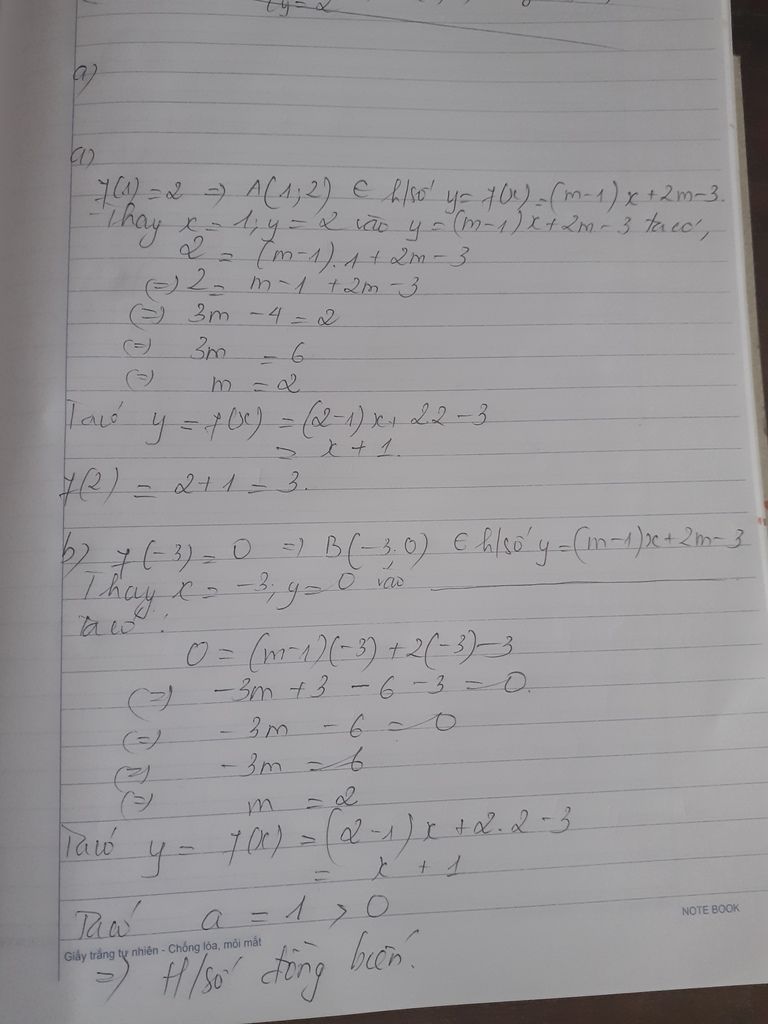 y = 2
a)
a)
f(1) = 2 => A(1; 2) ∈ h/số y = f(x) = (m-1)x + 2m-3.
Thay x = 1; y = 2 vào y = (m-1)x + 2m - 3 ta có,
2 = (m-1).1 + 2m - 3
(=) 2 = m-1 + 2m - 3
(=) 3m - 4 = 2
(=) 3m = 6
(=) m = 2
Ta có y = f(x) = (2-1)x + 2.2 - 3
= x + 1.
f(2) = 2+1 = 3.
b) f(-3) = 0 => B(-3; 0) ∈ h/số y = (m-1)x + 2m-3
Thay x = -3; y = 0 vào
Ta có:
0 = (m-1)(-3) + 2(-3) - 3
(=) -3m + 3 - 6 - 3 = 0.
(=) -3m - 6 = 0
(=) -3m = 6
(=) m = 2
Ta có y = f(x) = (2-1)x + 2.2 - 3
= x + 1
Ta có a = 1 > 0
NOTE BOOK
Giấy trắng tự nhiên - Chống lóa, mỏi mắt
=> H/số đồng biến.